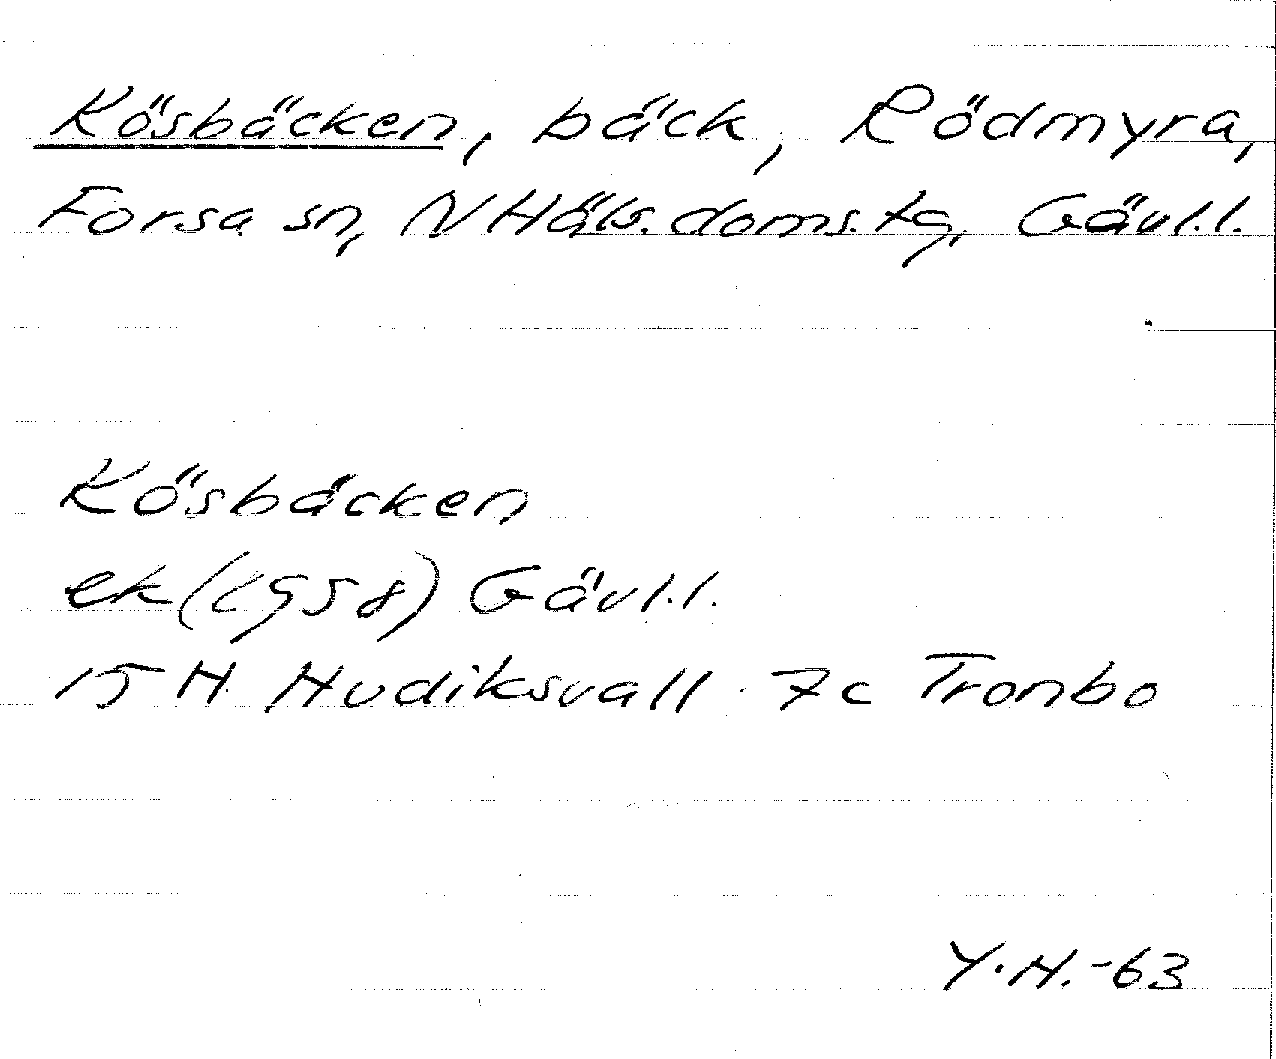 Kösbäcken, bäck, Rödmyra,
Forsa sn, N Häls. doms. tg, Gävl.l.
Kösbäcken
ek (1958) Gävl.l.
15 H Hudiksvall 7c Tronbo
Y.H.-63